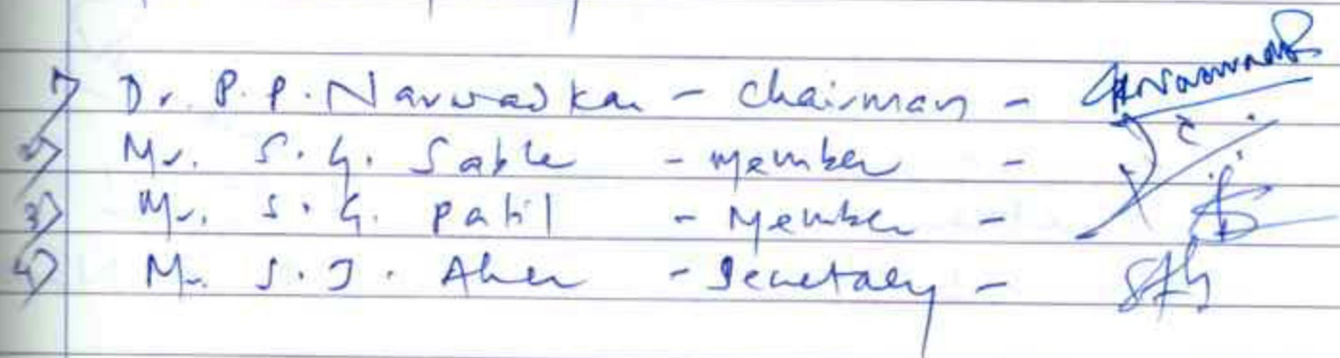 1) Dr. P. P. Narwadkar - Chairman -
2) Mr. S. G. Sable - member -
3) Mr. S. G. Patil - Member -
4) Mr. S. J. Aher - Secretary -